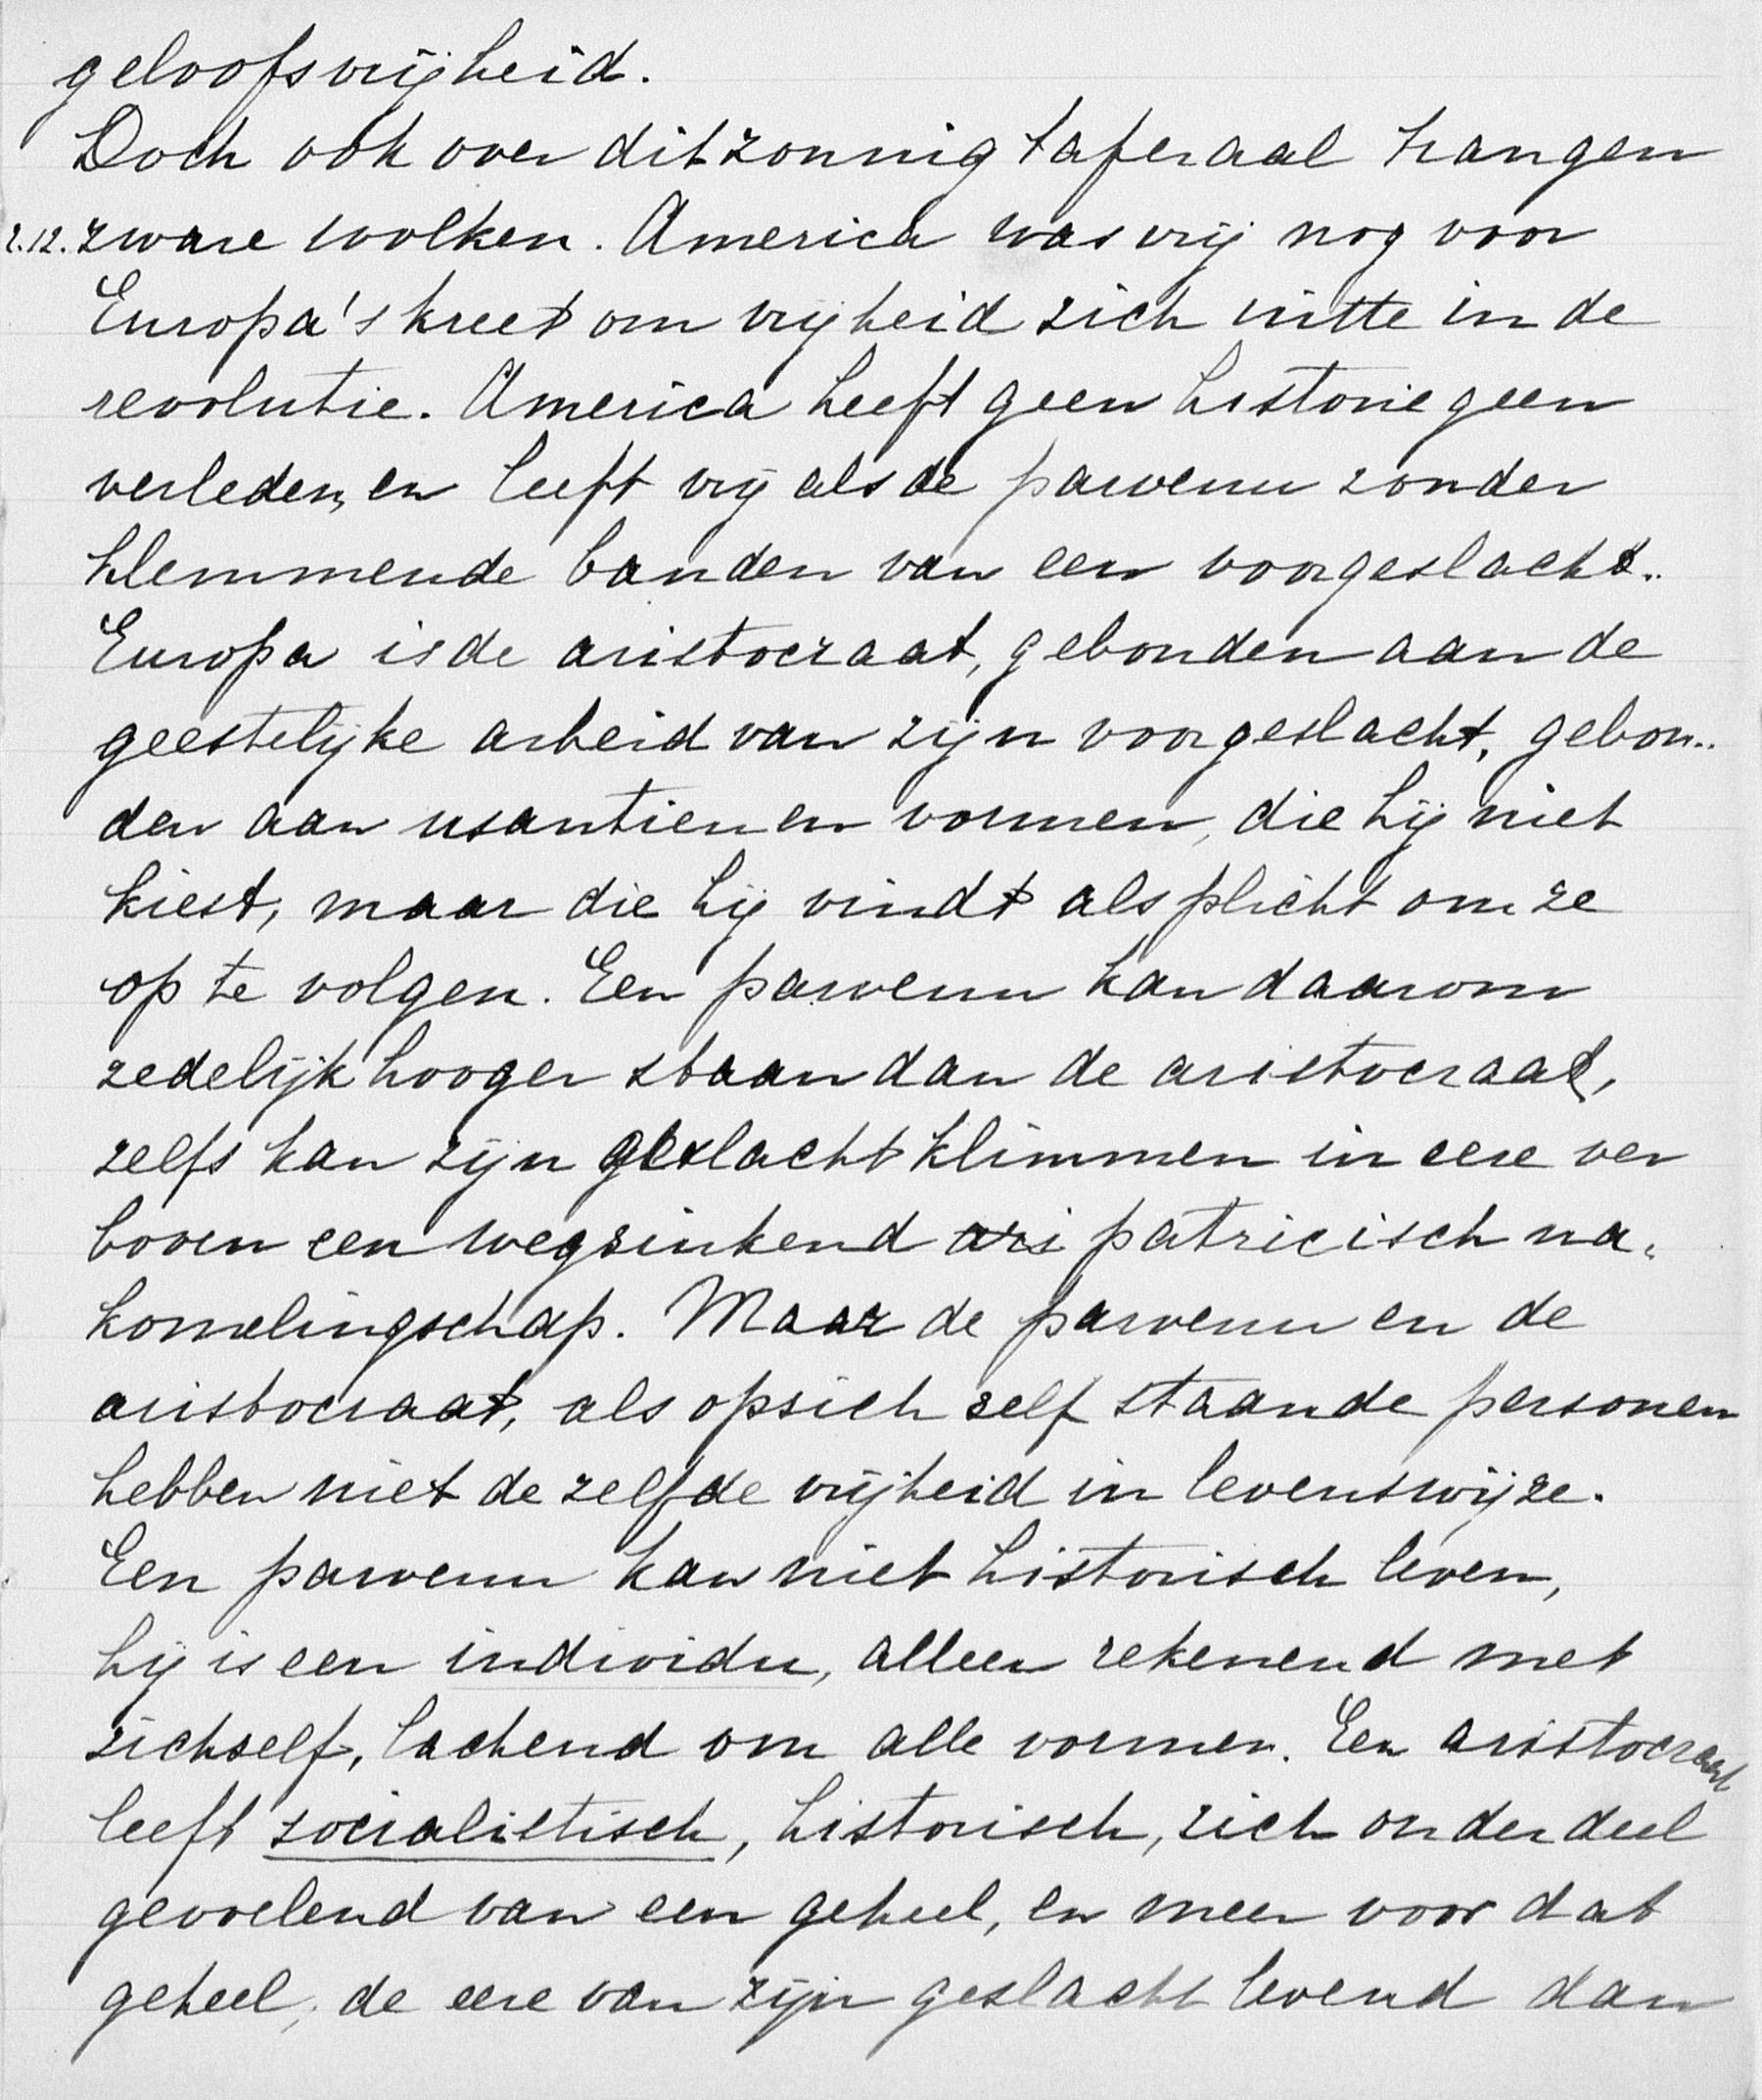 geloofsvrijheid.
Doch ook over dit zonnig tafereel hangen
2.12. zware wolken. America was vrij nog voor
Europa's kreet om vrijheid zich uitte in de
revolutie. America heeft geen historie geen
verleden, en leeft vrij als de parvenu zonder
klemmende banden van een voorgeslacht..
Europa is de aristocraat, gebonden aan de
geestelijke arbeid van zijn voorgeslacht, gebon..
den aan usantien en vormen, die hij niet
kiest, maar die hij vindt als plicht om ze
op te volgen. Een parvenu kan daarom
zedelijk hooger staan dan de aristocraat,
zelfs kan zijn geslacht klimmen in eere ver
boven een wegzinkend ari patricisch na-
komelingschap. Maar de parvenu en de
aristocraat, als op zich zelf staande personen
hebben niet de zelfde vrijheid in levenswijze.
Een parvenu kan niet historisch leven,
hij is een individu, alleen rekenend met
zichself, lachend om alle vormen. Een aristocraat
leeft socialistisch, historisch, zich onderdeel
gevoelend van een geheel, en meer voor dat
geheel, de eere van zijn geslacht levend dan